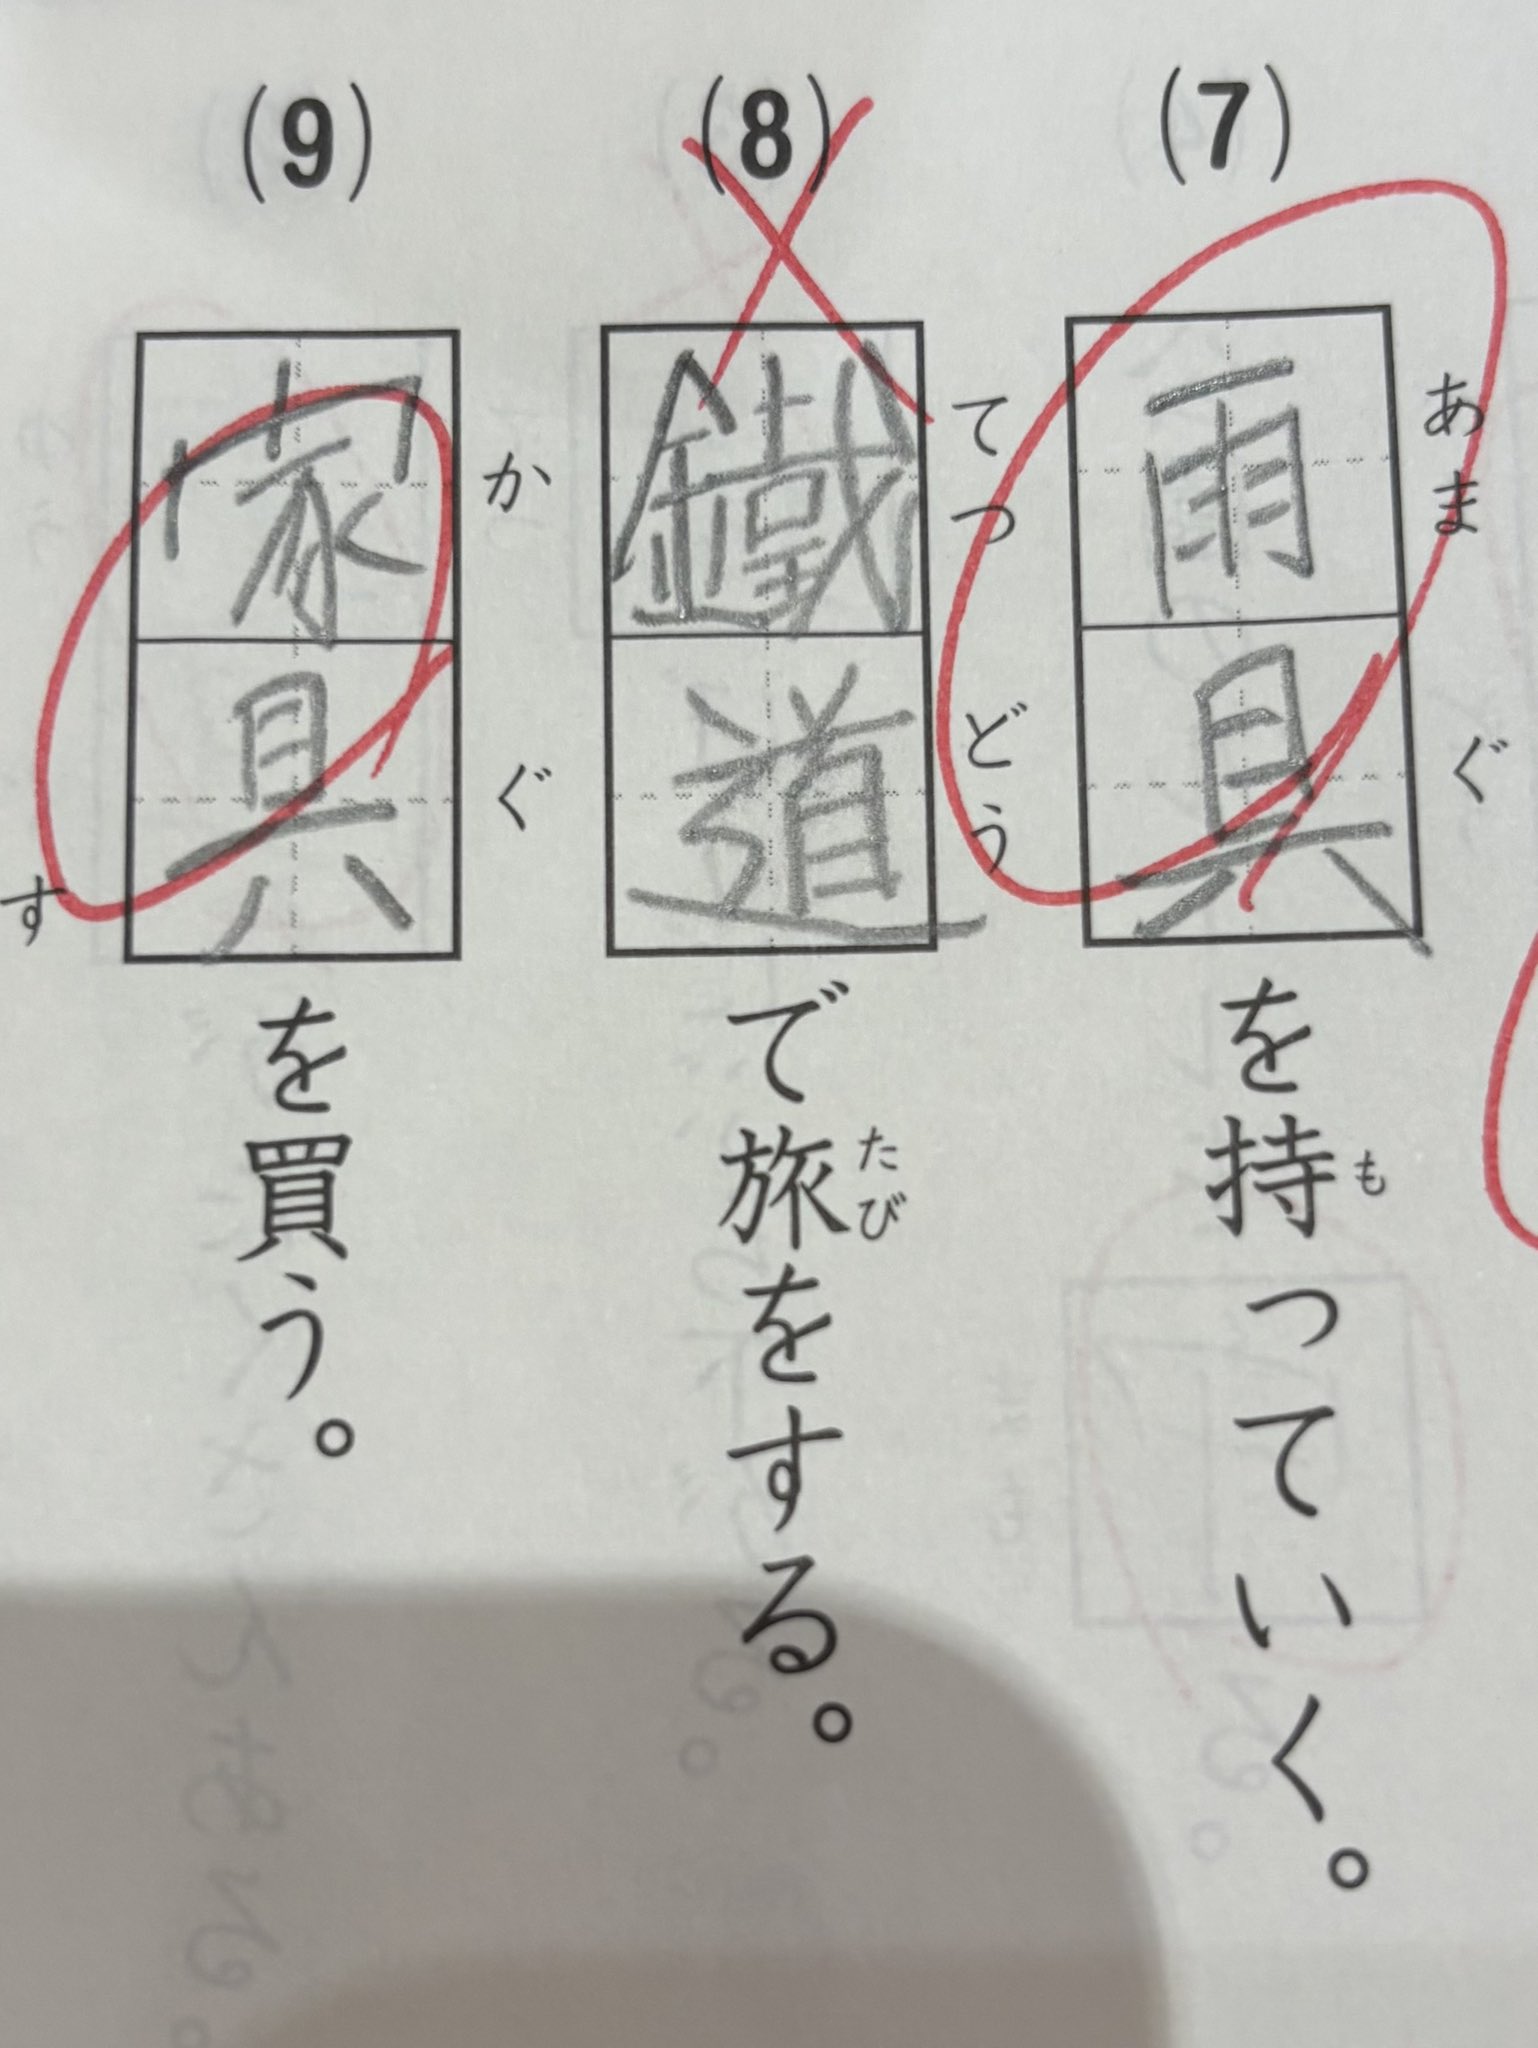 (7)
雨具を持っていく。
あま ぐ
も
(8)
鐵道で旅をする。
てつ どう
たび
(9)
家具を買う。
か ぐ
す